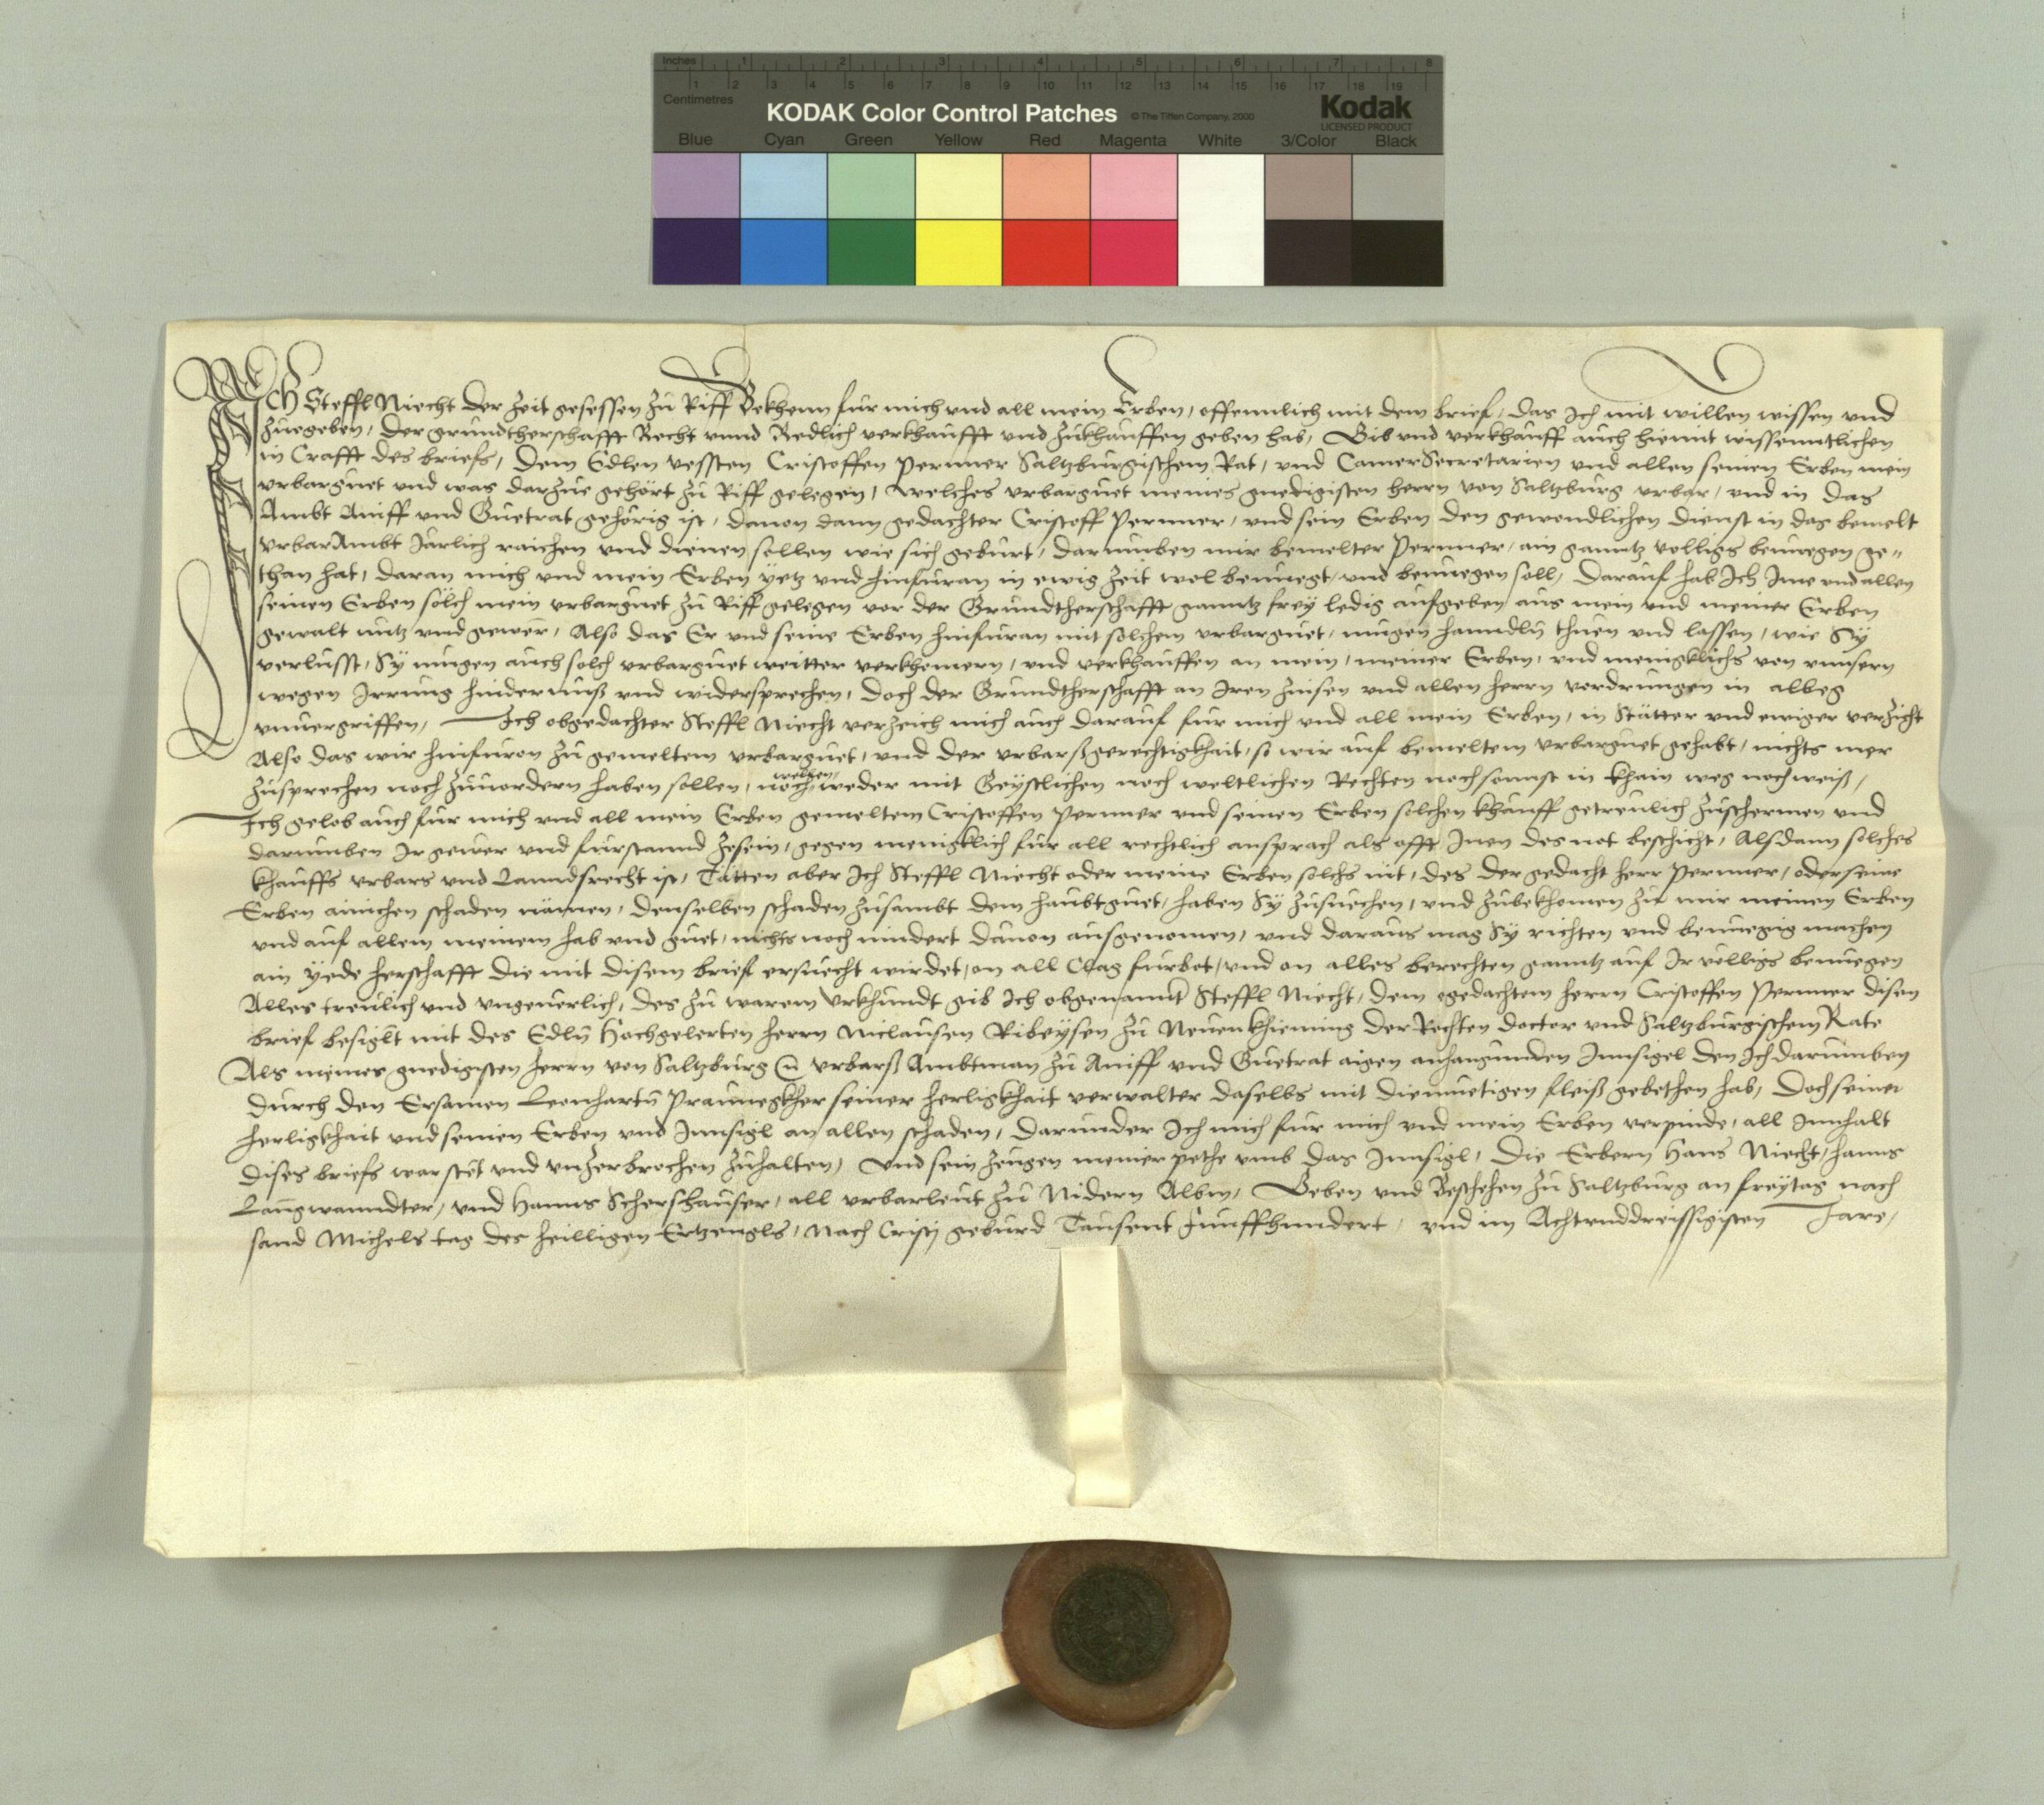 Inches 1 2 3 4 5 6 7 8
1 2 3 4 5 6 7 8 9 10 11 12 13 14 15 16 17 18 19
Centimetres
KODAK Color Control Patches © The Tiffen Company, 2000 Kodak
LICENSED PRODUCT
Blue Cyan Green Yellow Red Magenta White 3/Color Black
Ich Steffl Niecht der zeit gesessen zu Riff Bekhenn fur mich vnd all mein Erben, offennlich mit dem brief, das Ich mit willen wissen vnd
zuegeben, der grundtherschafft Recht vnnd Redlich verkhaufft vnd zukhauffen geben hab, Gib vnd verkhauff auch hiemit wissenntlichen
in Crafft des briefs, dem Edlen vessten Cristoffen Perner Saltzburgischem Rat, vnd CamerSecretarien vnd allen seinen Erben mein
vrbarguet vnd was darzue gehört zu Riff gelegen, welches vrbarguet meines gnedigisten herrn von Saltzburg vrbar, vnd in das
Ambt Aniff vnd Guetrat gehörig ist, dauon dann gedachter Cristoff Perner, vnd sein Erben den gewondlichen dienst in das bemelt
vrbarAmbt Järlich raichen vnd dienen sollen wie sich geburt, darumben mir bemelter Perner, ain ganntz volligs benuegen ge„
than hat, daran mich vnd mein Erben yetz vnd hinfuran in ewig zeit wol benuegt, vnd benuegen soll, darauf hab Ich Ime vnd allen
seinen Erben solch mein vrbarguet zu Riff gelegen vor der Grundtherschafft ganntz frey ledig aufgeben aus mein vnd meiner Erben
gewalt nutz vnd gewer, Also das Er vnd seine Erben hinfuran mit solchem vrbarguet, mugen hanndln thuen vnd lassen, wie Sy
verlusst, Sy mugen auch solch vrbarguet weitter verkhomern, vnd verkhauffen an mein, meiner Erben, vnd menigklichs von vnnsern
wegen Irrung hindernuß vnd widersprechen, doch der Grundtherschafft an Iren zinsen vnd allen herrn vordrungen in albeg
vnuergriffen, Ich obgedachter Steffl Niecht verzeich mich auch darauf fur mich vnd all mein Erben, in Stätter vnd ewiger verzicht
Also das wir hinfuron zu gemeltem vrbarguet, vnd der vrbarßgerechtigkhait, so wir auf bemeltem vrbarguet gehabt, nichts mer
zusprechen noch zuuordern haben sollen, noch wellen, weder mit Geystlichen noch weltlichen Rechten noch sonnst in khain weg noch weiß,
Ich gelob auch fur mich vnd all mein Erben gemeltem Cristoffen Perner vnd seinen Erben solchen khauff getreulich zuschermen vnd
darumben Ir gewer vnd furstannd zesein, gegen menigklich fur all rechtlich ansprach als offt Inen des not beschicht, Alsdann solches
khauffs vrbars vnd Lanndsrecht ist, Tätten aber Ich Steffl Niecht oder meine Erben solchs nit, des der gedacht herr Perner, oder seine
Erben ainichen schaden nämen, denselben schaden zusambt dem haubtguet, haben Sy zusuechen, vnd zubekhomen zu mir meinen Erben
vnd auf allem meinem hab vnd guet, nichts noch nindert dauon ausgenomen, vnd daraus mag Sy richten vnd benuegig machen
ain yede herschafft die mit disem brief ersuecht wirdet, on all Clag furbot, vnd on alles berechten ganntz auf Ir volligs benuegen
Alles treulich vnd vngeuerlich, des zu warem Vrkhundt gib Ich obgenannt Steffl Niecht, dem egedachtem herrn Cristoffen Perner disen
brief besiglt mit des Edln Hochgelerten herrn Niclausen Ribeysen zu Neuenkhieming der Rechten doctor vnd Saltzburgischem Rate
Als meines gnedigisten herrn von Saltzburg vrbarß Ambtman zu Aniff vnd Guetrat aigen anhangunden Innsigel den Ich darumben
durch den Ersamen Leonhartn Praunegkher seiner herligkhait verwalter daselbs mit diemuetigen fleiß gebethen hab, doch seiner
herligkhait vnd seinen Erben vnd Innsigl an allen schaden, darunder Ich mich fur mich vnd mein Erben verpinde, all Innhalt
dises briefs war stet vnd vnzerbrochen zuhalten, Vnd sein zeugen meiner pethe vmb das Innsigl, die Erbern Hans Niecht, hanns
Langwanndter, vnd Hanns Scherschauser, all vrbarleut zu Nidern Albm, Geben vnd Beschehen zu Saltzburg an freytag nach
sand Michels tag des heilligen Ertzengls, Nach Cristj geburd Tausent Funffhundert, vnd im Achtvnddreissigisten Jare,